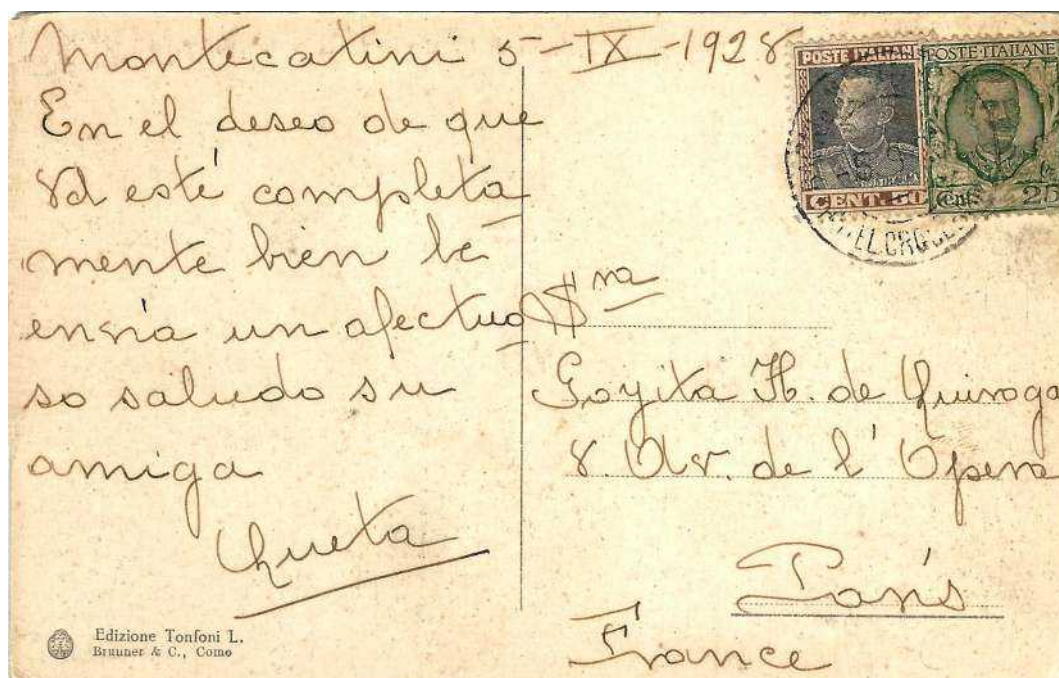 Montecatini 5-IX-1928
En el deseo de que
Vd esté completa
mente bien le
envía un afectuo
so saludo su
amiga
Queta
Edizione Tonfoni L.
Brunner & C., Como
POSTE ITALIANE
CENT. 50
POSTE·ITALIANE
Cent. 25
Sra
Goyita H. de Quiroga
8. Av. de l'Opera
París
France